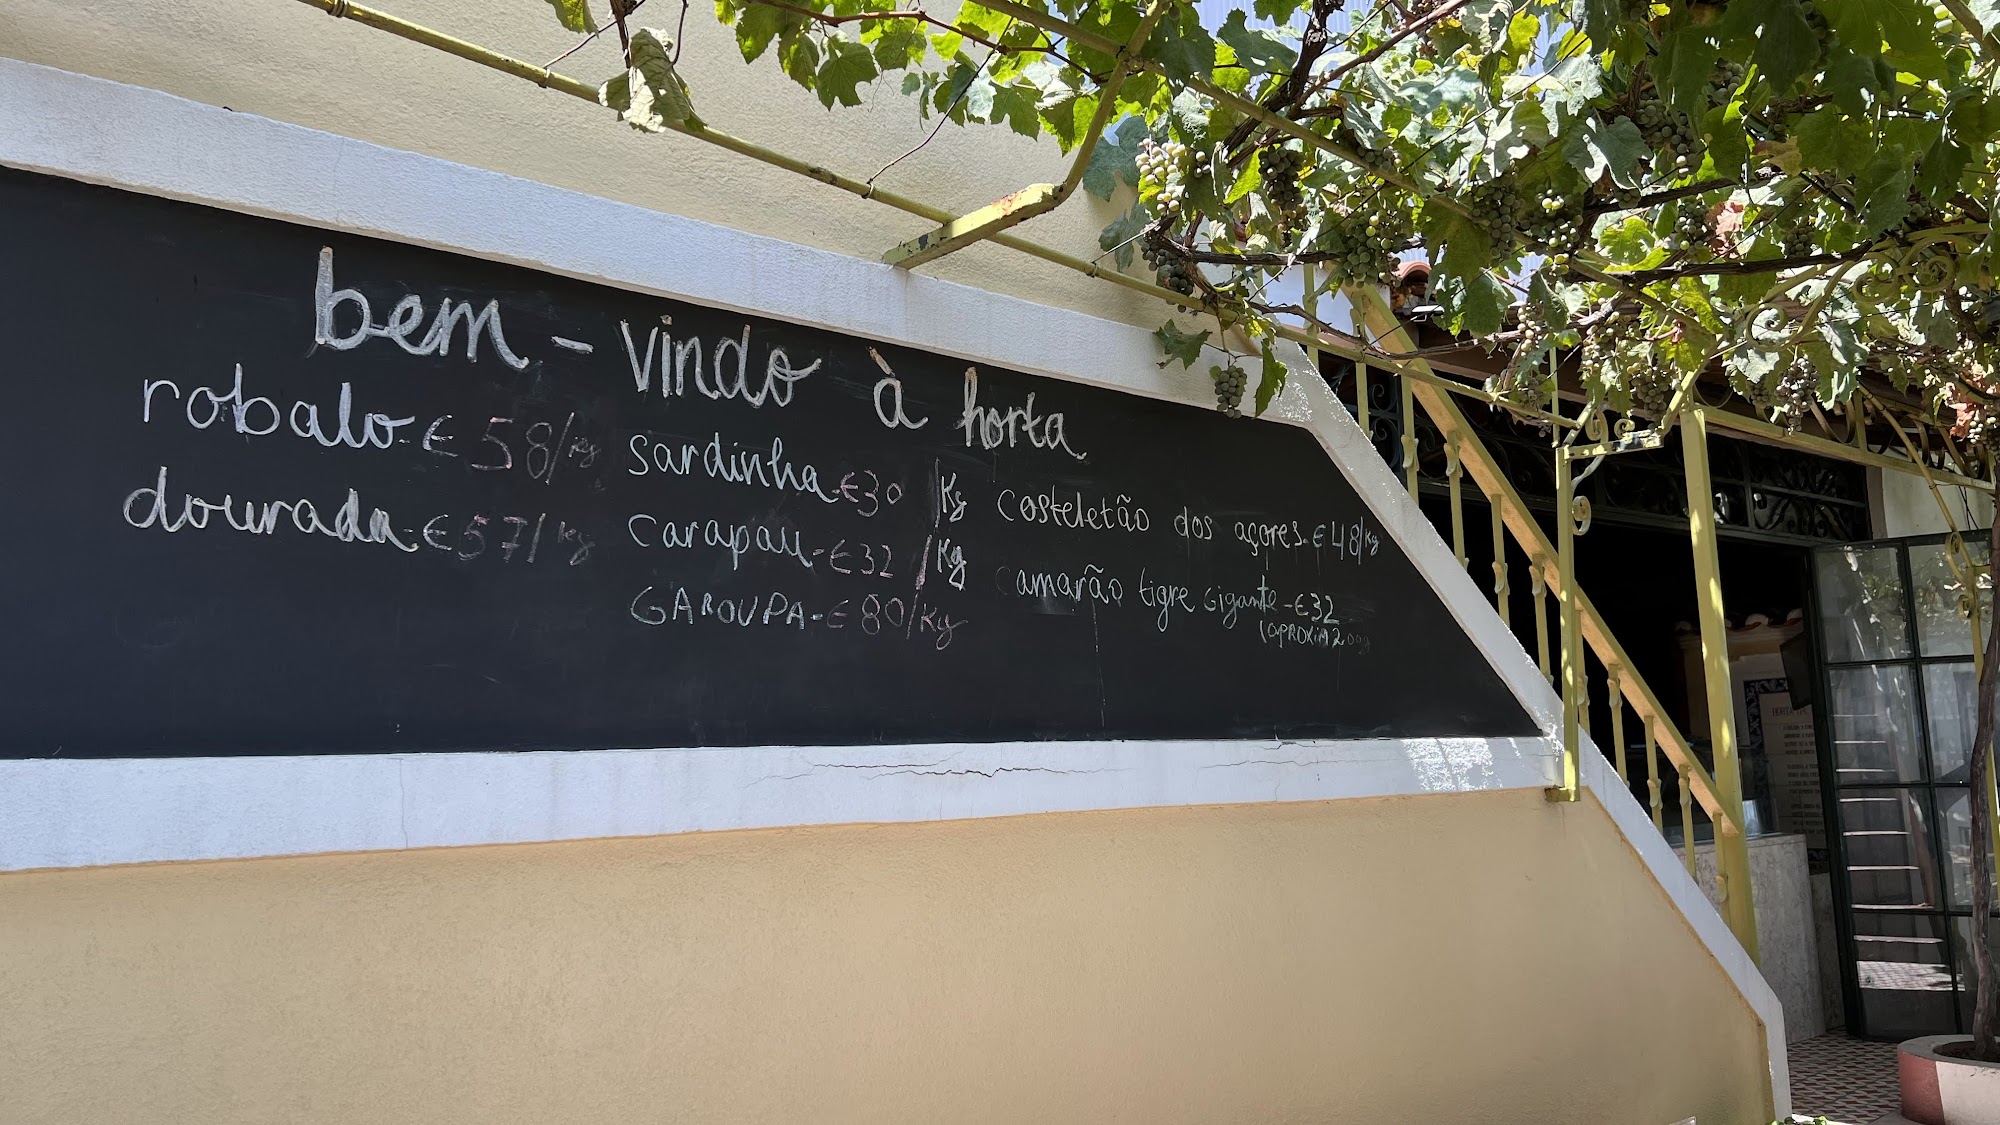 bem-vindo à horta
robalo-€58/kg
dourada-€57/kg
sardinha-€30/Kg
carapau-€32/Kg
GAROUPA-€80/Kg
costeletão dos açores-€48/kg
camarão tigre gigante-€32
(APROXIM200g
HORTA